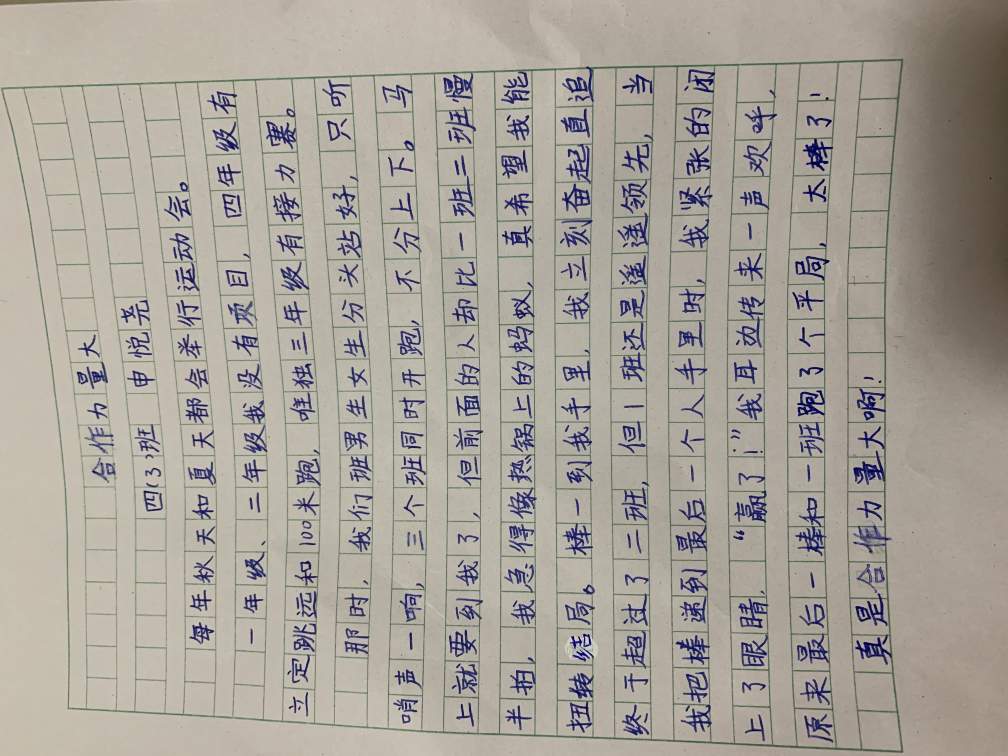 合作力量大
四(3)班 申悦尧
每年秋天和夏天都会举行运动会。
一年级、二年级我没有项目，四年级有
立定跳远和100米跑，唯独三年级有接力赛。
那时，我们班男生女生分头站好，只听
哨声一响，三个班同时开跑，不分上下。马
上就要到我了，但前面的人却比一班二班慢
半拍，我急得像热锅上的蚂蚁，真希望我能
扭转结局。棒一到我手里，我立刻奋起直追
终于超过了二班，但1班还是遥遥领先，当
我把棒递到最后一个人手里时，我紧张的闭
上了眼睛，“赢了！”我耳边传来一声欢呼，
原来最后一棒和一班跑了个平局，太棒了！
真是合作力量大啊！